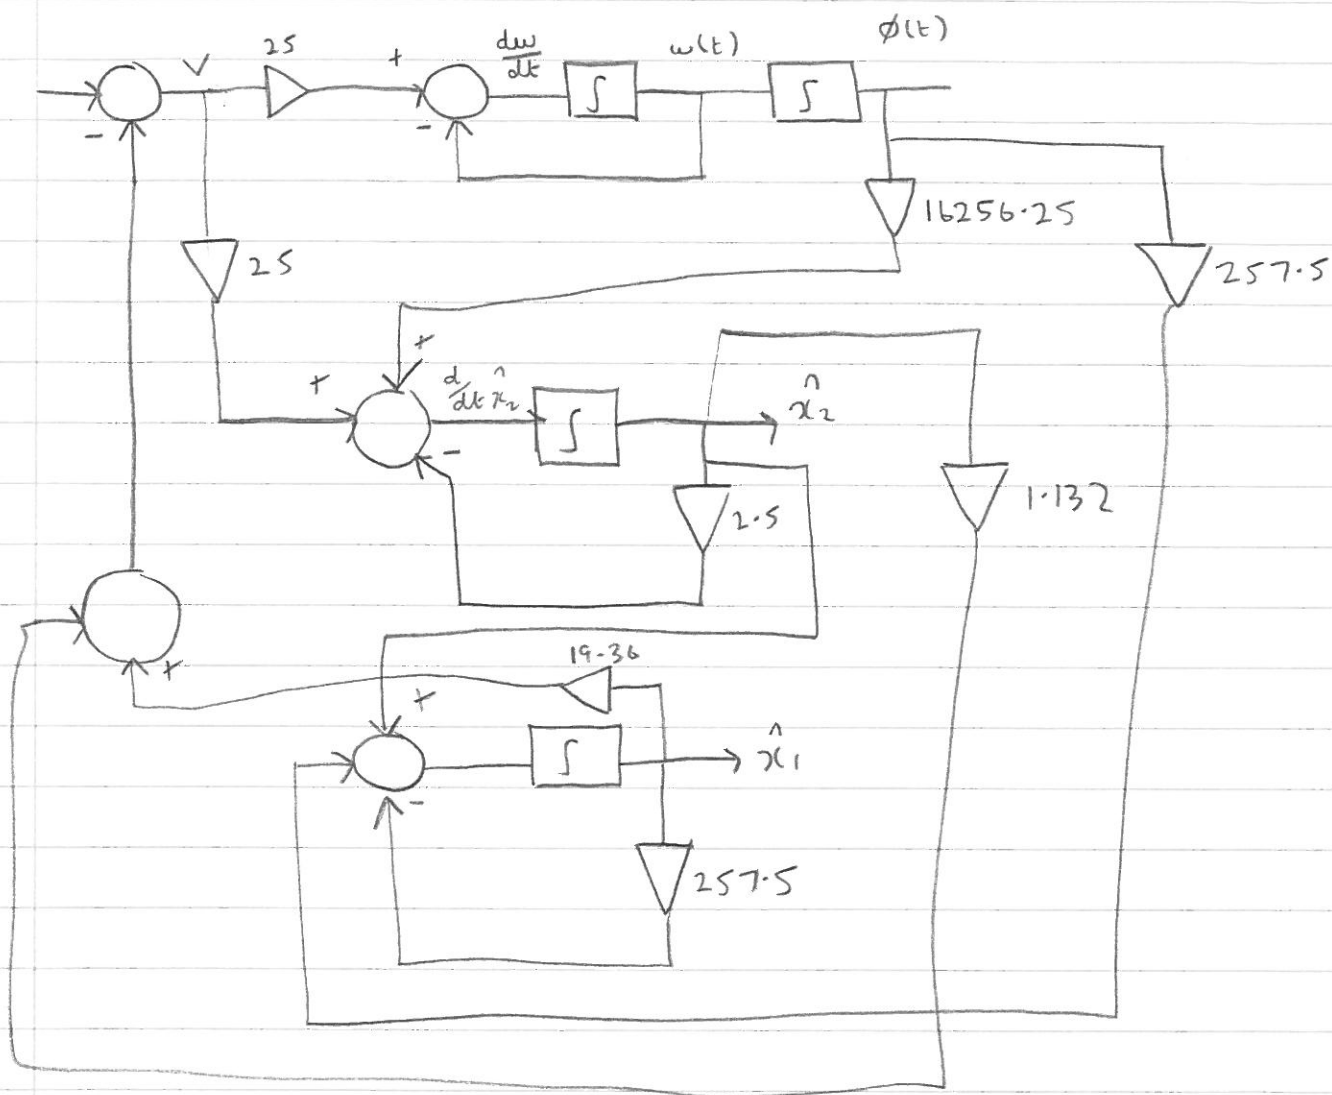 25
V
+
dω/dt
ω(t)
ϕ(t)
∫
∫
-
-
16256.25
257.5
25
+
+
d/dt x̂₂
∫
x̂₂
-
2.5
1.132
19.36
+
+
∫
x̂₁
-
257.5